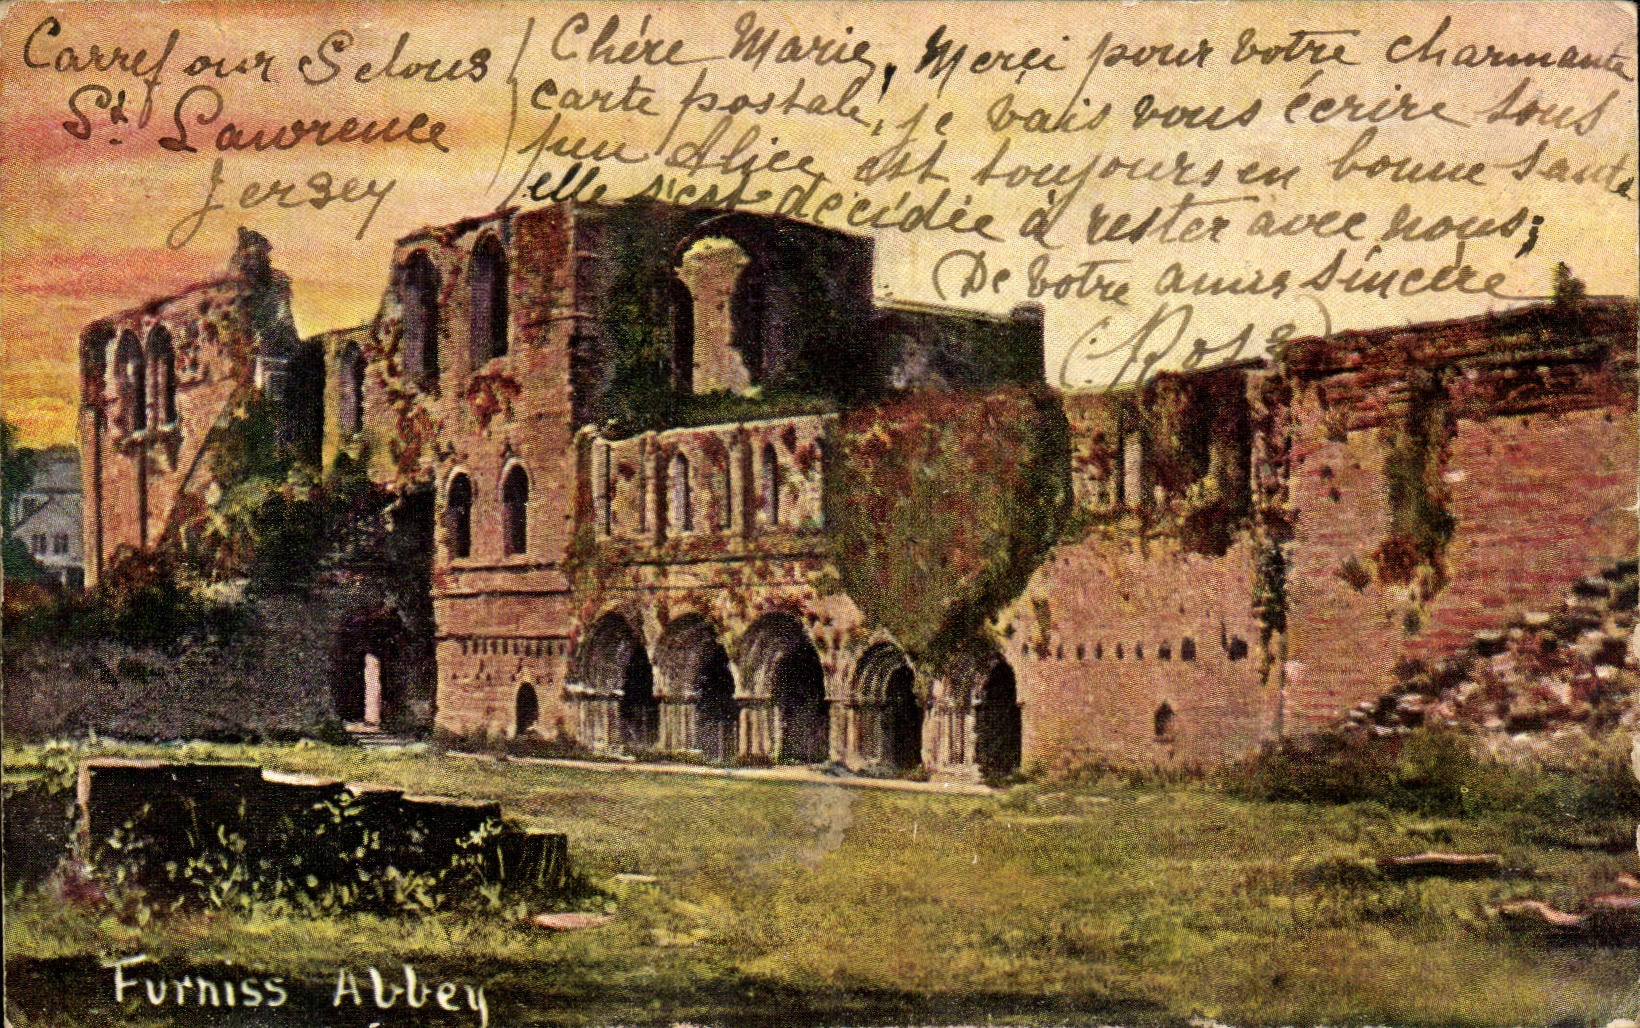 Carrefour Selous
St. Lawrence
Jersey
Chère Marie, Merci pour votre charmante
carte postale, je vais vous écrire sous
peu Alice est toujours en bonne santé
elle s'est décidée à rester avec nous;
De votre amie sincère
Rose
Furniss Abbey